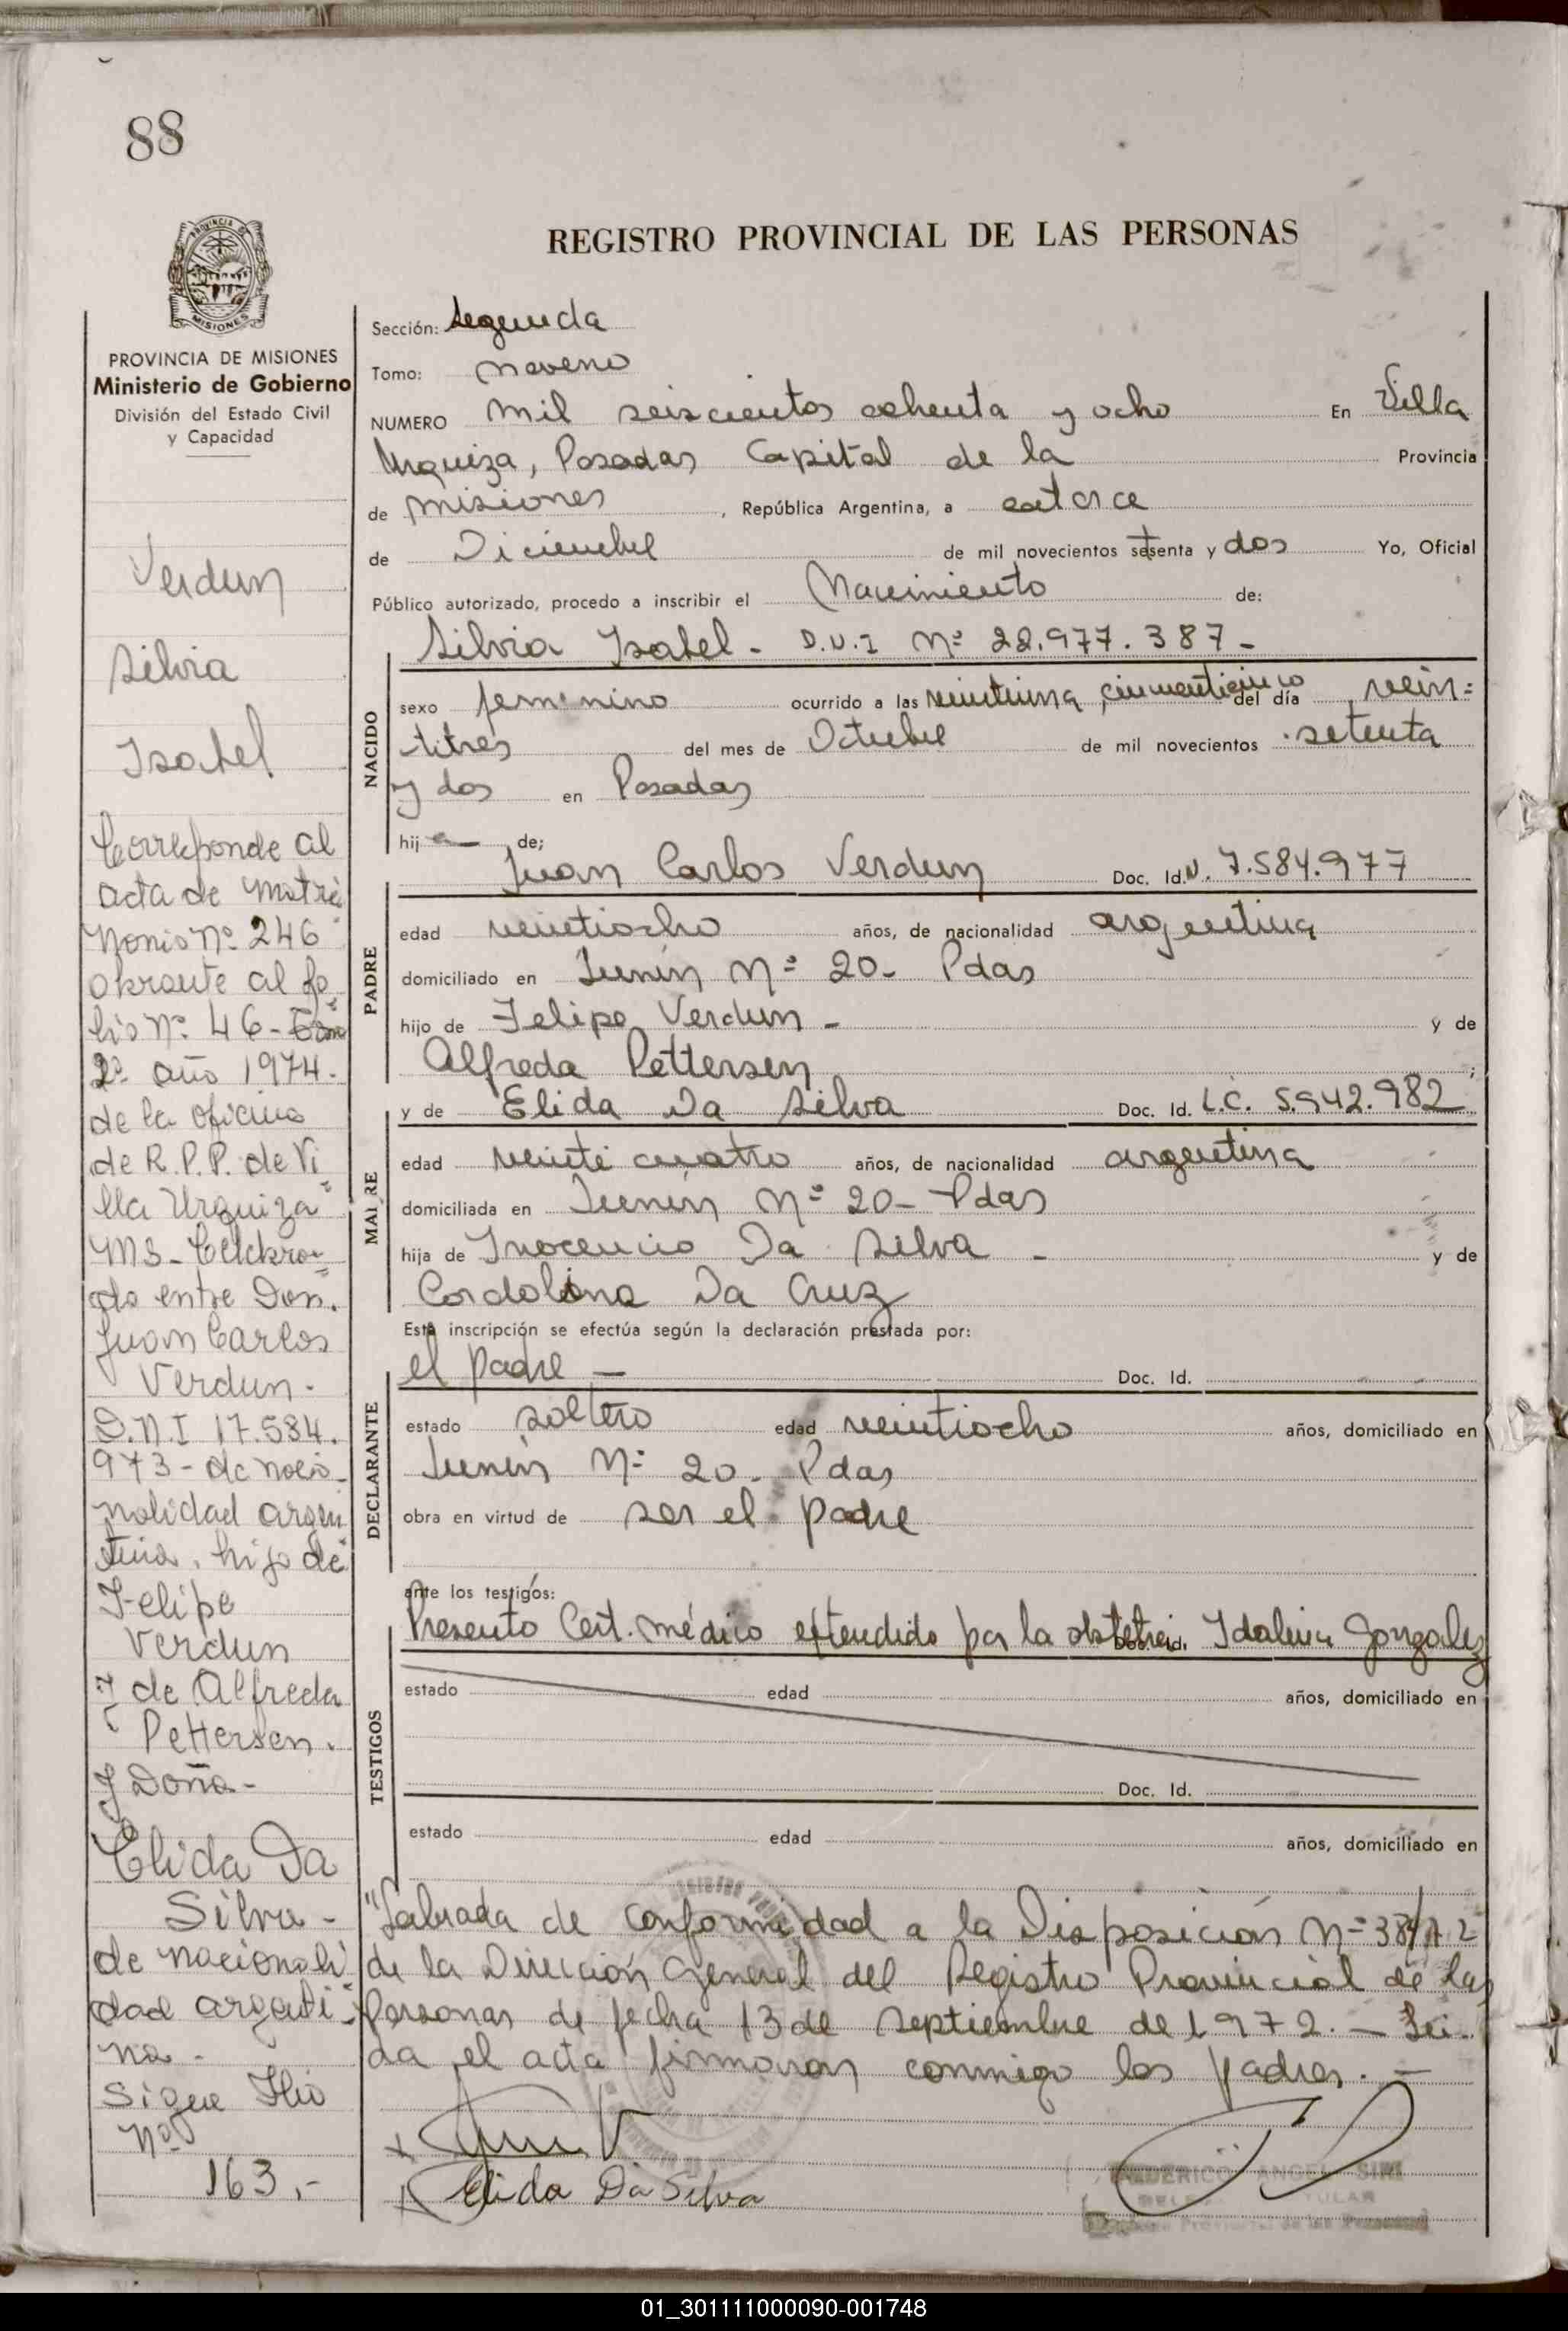 88
PROVINCIA DE
MISIONES
PROVINCIA DE MISIONES
Ministerio de Gobierno
División del Estado Civil
y Capacidad
Verdun
Silvia
Isabel
Correponde al
acta de matri
monio Nº 246
obrante al fo
lio Nº 46 - Tomo
2º año 1974.
de la oficina
de R.P.P. de Vi
lla Urquiza
MS - Celebra
do entre Don.
Juan Carlos
Verdun.
D.N.I 17.584.
973 - de nacio
nalidad argen
tina, hijo de
Felipe
Verdun
y de Alfreda
Pettersen.
y Doña -
Elida Da
Silva -
de nacionali
dad argenti
na -
Sigue flio
Nº
163.-
REGISTRO PROVINCIAL DE LAS PERSONAS
Sección: Segunda
Tomo: noveno
NUMERO mil seiscientos ochenta y ocho En Villa
Urquiza, Posadas Capital de la Provincia
de misiones, República Argentina, a catorce
de Diciembre de mil novecientos setenta y dos Yo, Oficial
Público autorizado, procedo a inscribir el Nacimiento de:
Silvia Isabel - D.N.I Nº 22.977.387 -
NACIDO
sexo femenino ocurrido a las veintiuna, cincuenticinco del día vein=
titres del mes de Octubre de mil novecientos setenta
y dos en Posadas
hija de;
Juan Carlos Verdun Doc. Id. N. 7.584.977
PADRE
edad veintiocho años, de nacionalidad argentina
domiciliado en Junín Nº 20- Pdas
hijo de Felipe Verdun - y de
Alfreda Pettersen;
y de Elida Da Silva Doc. Id. L.C. 5.942.982
MADRE
edad veinte cuatro años, de nacionalidad argentina
domiciliada en Junín Nº 20- Pdas
hija de Inocencio Da Silva - y de
Cordolina Da Cruz
Esta inscripción se efectúa según la declaración prestada por:
el padre - Doc. Id.
DECLARANTE
estado soltero edad veintiocho años, domiciliado en
Junín Nº 20- Pdas
obra en virtud de ser el padre
ante los testigos:
Presento Cert. médico extendido por la obstetricia Doc. Id. Idalina Gonzalez
TESTIGOS
estado edad años, domiciliado en
Doc. Id.
estado edad años, domiciliado en
"Labrada de conformidad a la Disposición Nº 384/72
de la Dirección General del Registro Provincial de las
Personas de fecha 13 de septiembre de 1972. - Lei
da el acta firmaron conmigo los padres. -
Elida Da Silva
ANGEL SIRI
01_301111000090-001748